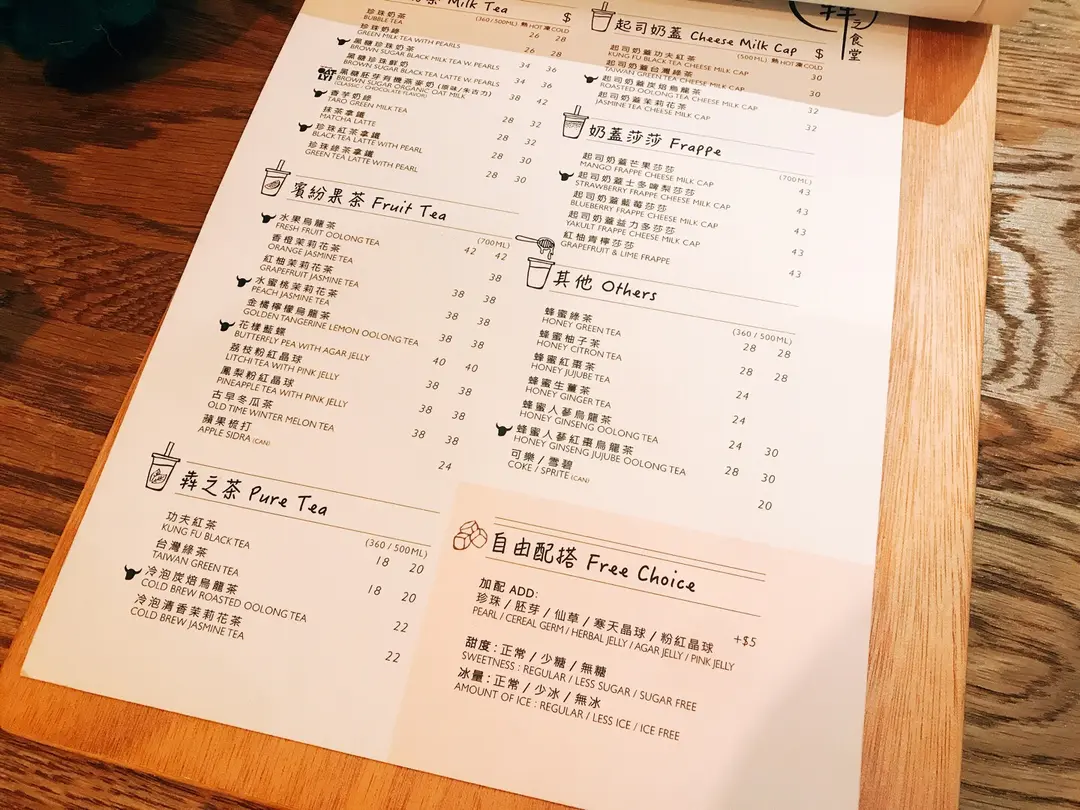 茶 Milk Tea $
(360/500ML) 熱HOT 凍COLD
珍珠奶茶
BUBBLE TEA 26 28
珍珠奶綠
GREEN MILK TEA WITH PEARLS 26 28
黑糖珍珠奶茶
BROWN SUGAR BLACK MILK TEA W. PEARLS 34 36
黑糖珍珠鮮奶
BROWN SUGAR BLACK TEA LATTE W. PEARLS 34
黑糖胚芽有機燕麥奶 (原味/朱古力)
BROWN SUGAR ORGANIC OAT MILK 38 42
(CLASSIC / CHOCOLATE FLAVOR)
香芋奶綠
TARO GREEN MILK TEA 28 32
抹茶拿鐵
MATCHA LATTE 28 32
珍珠紅茶拿鐵
BLACK TEA LATTE WITH PEARL 28 30
珍珠綠茶拿鐵
GREEN TEA LATTE WITH PEARL 28 30
繽紛果茶 Fruit Tea
(700ML)
水果烏龍茶
FRESH FRUIT OOLONG TEA 42 42
香橙茉莉花茶
ORANGE JASMINE TEA 38
紅柚茉莉花茶
GRAPEFRUIT JASMINE TEA 38 38
水蜜桃茉莉花茶
PEACH JASMINE TEA 38 38
金橘檸檬烏龍茶
GOLDEN TANGERINE LEMON OOLONG TEA 38 38
花樣藍蝶
BUTTERFLY PEA WITH AGAR JELLY 40 40
荔枝粉紅晶球
LITCHI TEA WITH PINK JELLY 38 38
鳳梨粉紅晶球
PINEAPPLE TEA WITH PINK JELLY 38 38
古早冬瓜茶
OLD TIME WINTER MELON TEA 38 38
蘋果梳打
APPLE SIDRA (CAN) 24
犇之茶 Pure Tea
(360/500ML)
功夫紅茶
KUNG FU BLACK TEA 18 20
台灣綠茶
TAIWAN GREEN TEA 18 20
冷泡炭焙烏龍茶
COLD BREW ROASTED OOLONG TEA 22
冷泡清香茉莉花茶
COLD BREW JASMINE TEA 22
之食堂
起司奶蓋 Cheese Milk Cap $
(500ML) 熱HOT 凍COLD
起司奶蓋功夫紅茶
KUNG FU BLACK TEA CHEESE MILK CAP 30
起司奶蓋台灣綠茶
TAIWAN GREEN TEA CHEESE MILK CAP 30
起司奶蓋炭焙烏龍茶
ROASTED OOLONG TEA CHEESE MILK CAP 32
起司奶蓋茉莉花茶
JASMINE TEA CHEESE MILK CAP 32
奶蓋莎莎 Frappe
(700ML)
起司奶蓋芒果莎莎
MANGO FRAPPE CHEESE MILK CAP 43
起司奶蓋士多啤梨莎莎
STRAWBERRY FRAPPE CHEESE MILK CAP 43
起司奶蓋藍莓莎莎
BLUEBERRY FRAPPE CHEESE MILK CAP 43
起司奶蓋益力多莎莎
YAKULT FRAPPE CHEESE MILK CAP 43
紅柚青檸莎莎
GRAPEFRUIT & LIME FRAPPE 43
其他 Others
(360/500ML)
蜂蜜綠茶
HONEY GREEN TEA 28 28
蜂蜜柚子茶
HONEY CITRON TEA 28 28
蜂蜜紅棗茶
HONEY JUJUBE TEA 24
蜂蜜生薑茶
HONEY GINGER TEA 24
蜂蜜人蔘烏龍茶
HONEY GINSENG OOLONG TEA 24 30
蜂蜜人蔘紅棗烏龍茶
HONEY GINSENG JUJUBE OOLONG TEA 28 30
可樂 / 雪碧
COKE / SPRITE (CAN) 20
自由配搭 Free Choice
加配 ADD:
珍珠 / 胚芽 / 仙草 / 寒天晶球 / 粉紅晶球 +$5
PEARL / CEREAL GERM / HERBAL JELLY / AGAR JELLY / PINK JELLY
甜度 : 正常 / 少糖 / 無糖
SWEETNESS : REGULAR / LESS SUGAR / SUGAR FREE
冰量 : 正常 / 少冰 / 無冰
AMOUNT OF ICE : REGULAR / LESS ICE / ICE FREE